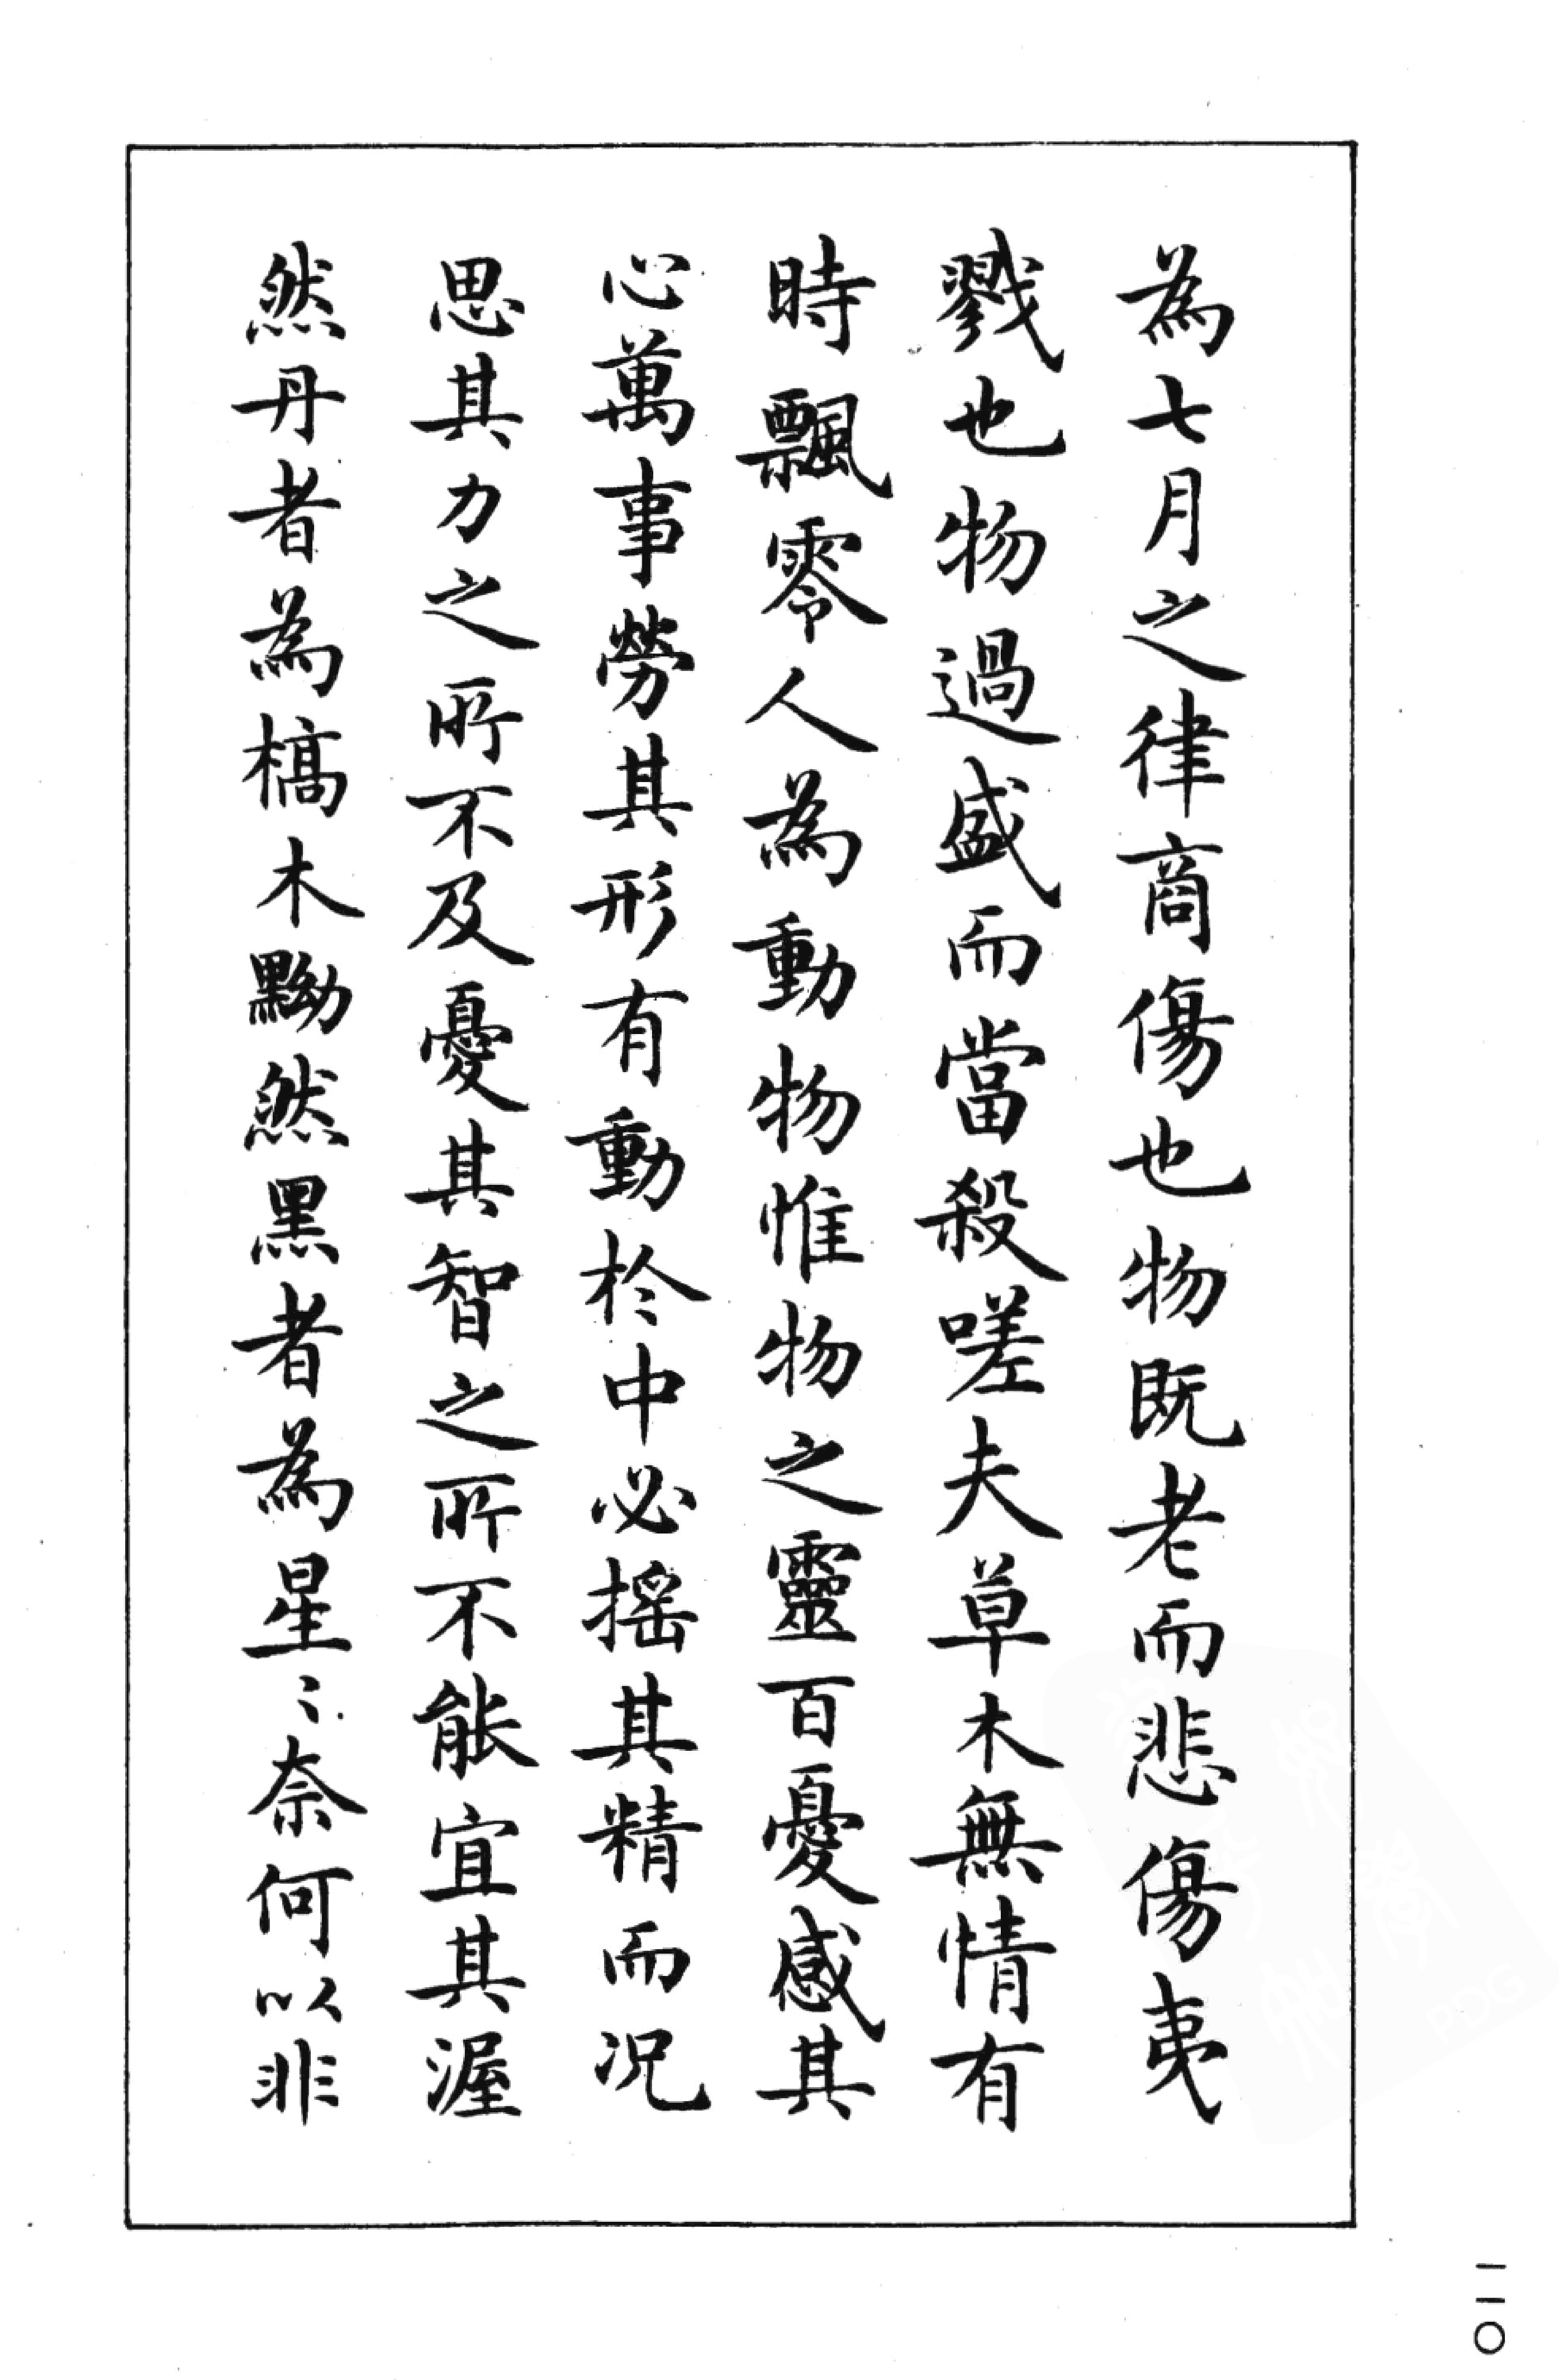 為七月之律商傷也物既老而悲傷夷
戮也物過盛而當殺嗟夫草木無情有
時飄零人為動物惟物之靈百憂感其
心萬事勞其形有動於中必搖其精而況
思其力之所不及憂其智之所不能宜其渥
然丹者為槁木黝然黑者為星〻奈何以非
一一〇